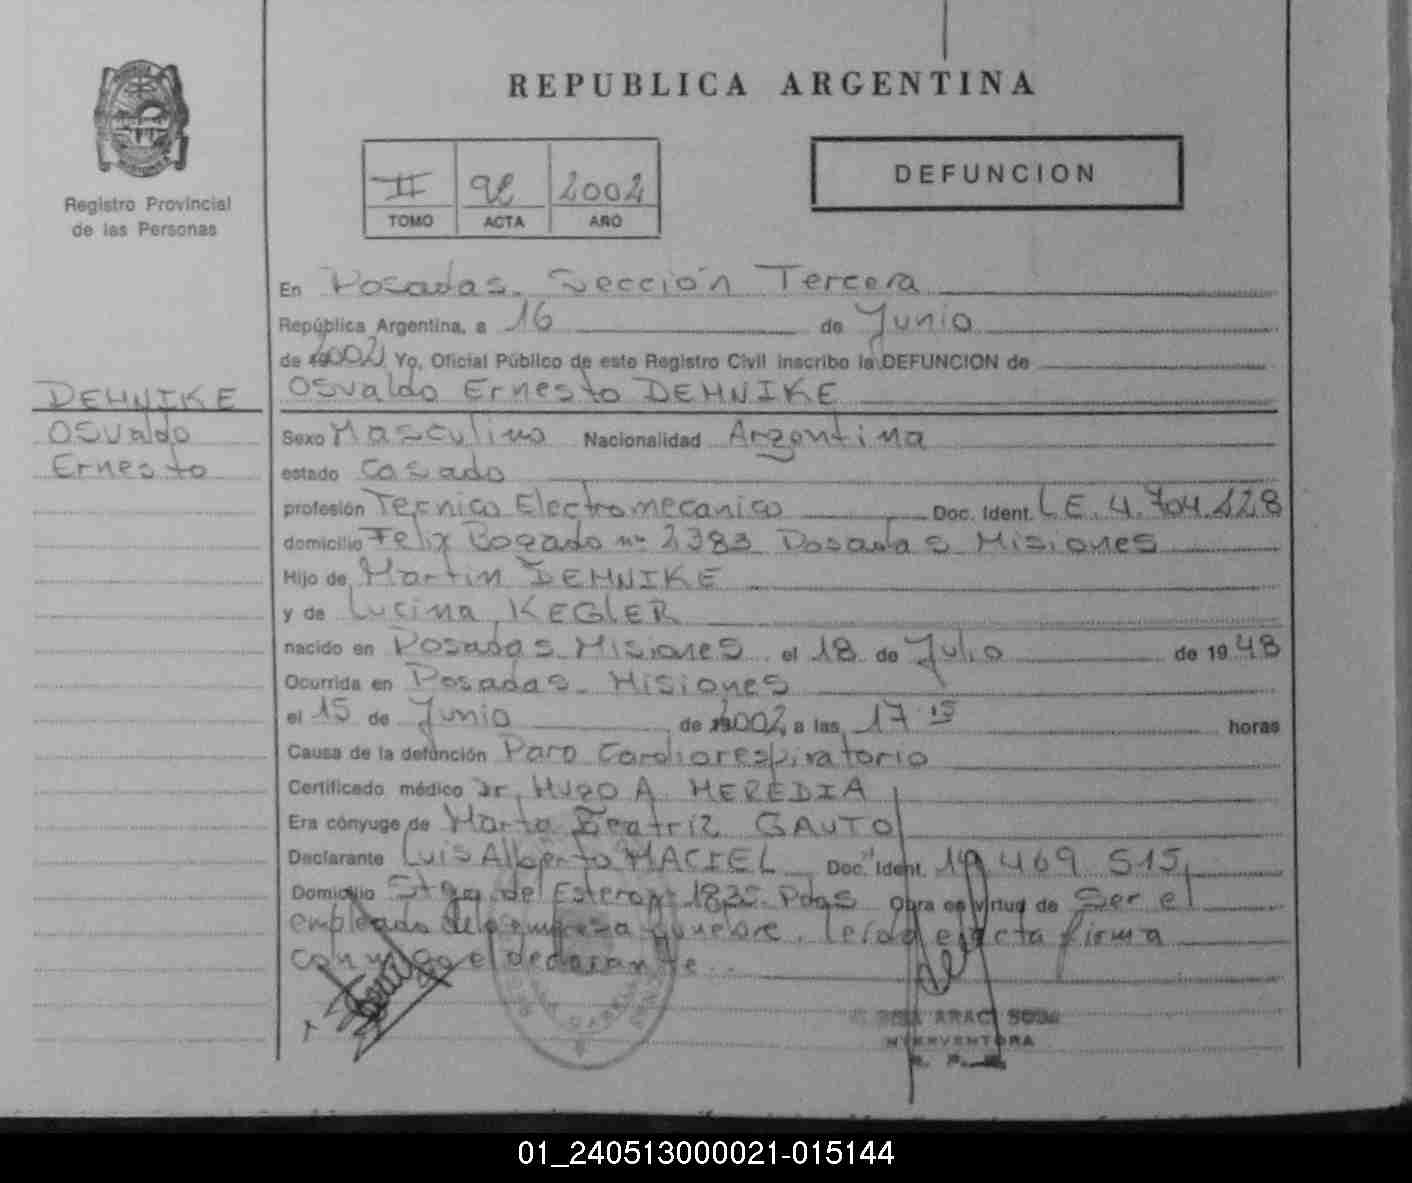 REPUBLICA ARGENTINA
DEFUNCION
II 2002
TOMO ACTA AÑO
Registro Provincial
de las Personas
En Posadas. Sección Tercera
República Argentina, a 16 de Junio
de 2002 Yo, Oficial Público de este Registro Civil inscribo la DEFUNCION de
Osvaldo Ernesto DEHNIKE
DEHNIKE
Osvaldo
Ernesto
Sexo Masculino Nacionalidad Argentina
estado Casado
profesión Tecnico Electromecanico Doc. Ident. L.E. 4.704.128
domicilio Felix Bogado nº 2383 Posadas Misiones
Hijo de Martin DEHNIKE
y de Lucina KEGLER
nacido en Posadas Misiones el 18 de Julio de 1948
Ocurrida en Posadas - Misiones
el 15 de Junio de 2002 a las 17.15 horas
Causa de la defunción Paro Cardiorespiratorio
Certificado médico Dr. Hugo A. HEREDIA
Era cónyuge de Marta Beatriz GAUTO
Declarante Luis Alberto MACIEL Doc. Ident. 19 469 515
Domicilio Stgo. del Estero nº 1835 Pdas Obra en virtud de Ser el
empleado de la empresa funebre. Leida el acta firma
conmigo el declarante.
INTERVENTORA
01_240513000021-015144